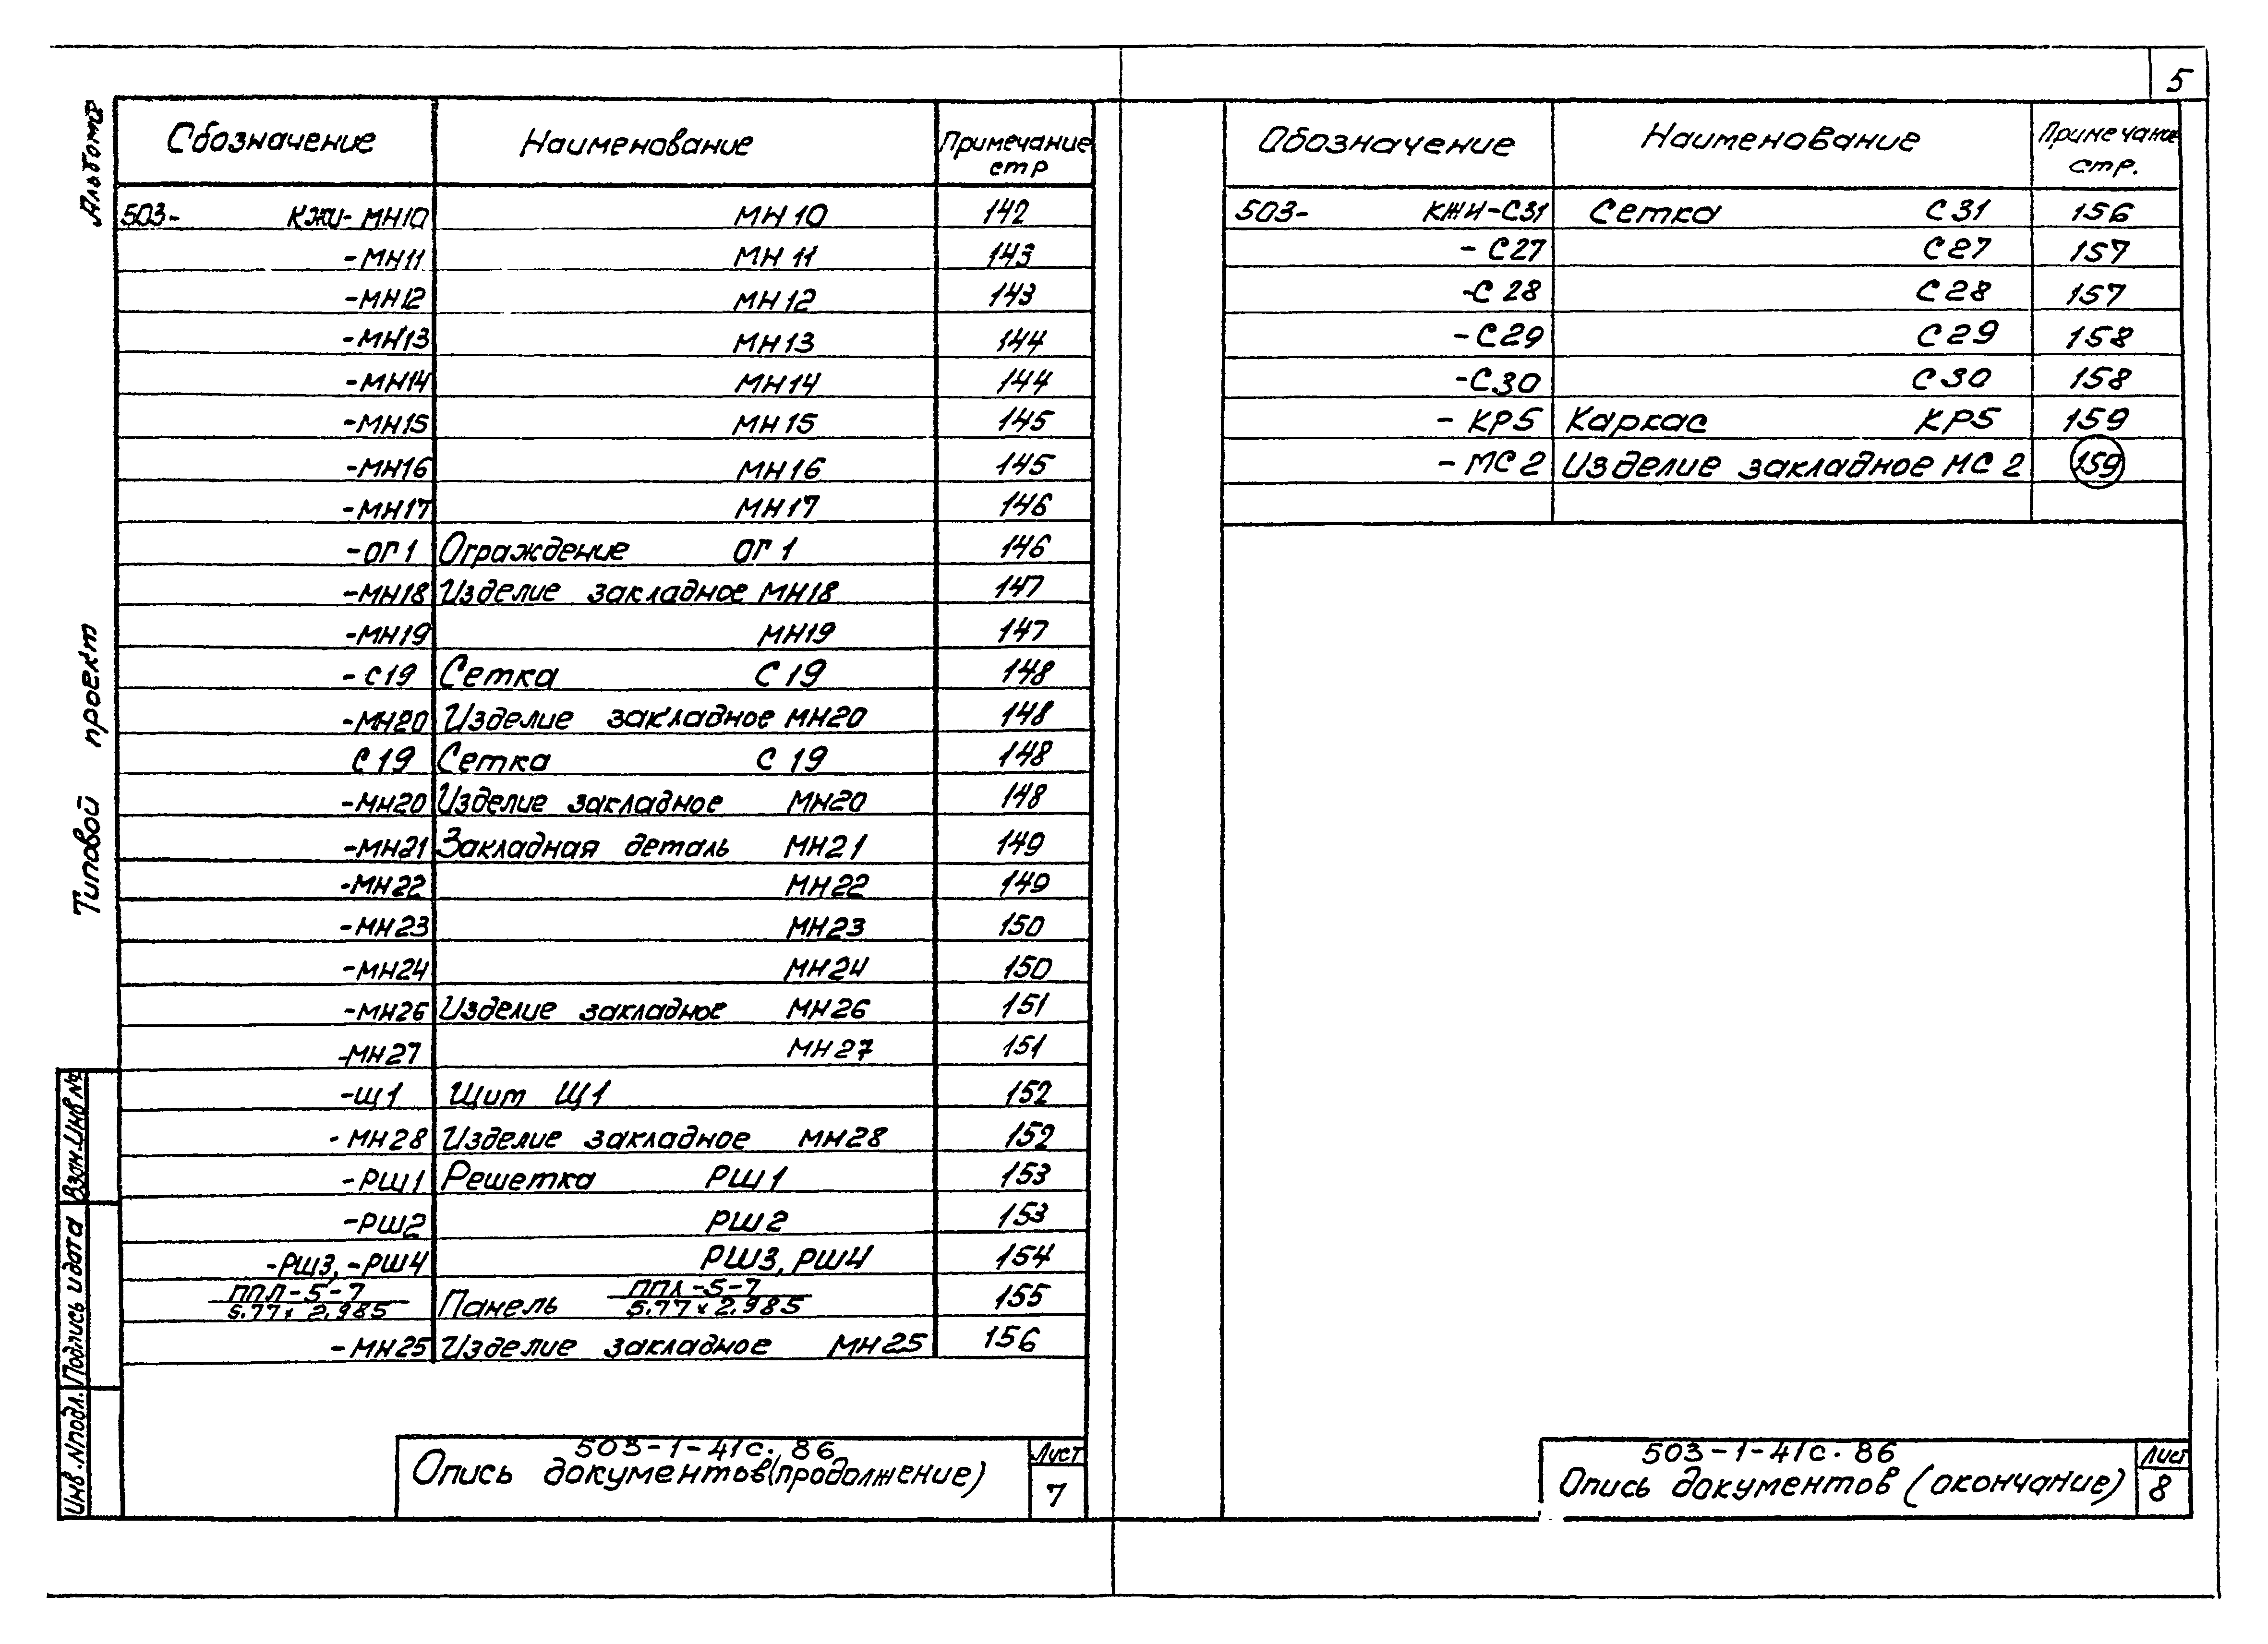 5
Альбом
Типовой проект
Взам.Инв№
Подпись и дата
Инв.№подл.
Обозначение Наименование Примечание стр
503- КЖИ-МН10 МН10 142
-МН11 МН 11 143
-МН12 МН12 143
-МН13 МН13 144
-МН14 МН14 144
-МН15 МН15 145
-МН16 МН16 145
-МН17 МН17 146
-ОГ1 Ограждение ОГ1 146
-МН18 Изделие закладное МН18 147
-МН19 МН19 147
-С19 Сетка С19 148
-МН20 Изделие закладное МН20 148
С19 Сетка С 19 148
-МН20 Изделие закладное МН20 148
-МН21 Закладная деталь МН21 149
-МН22 МН22 149
-МН23 МН23 150
-МН24 МН24 150
-МН26 Изделие закладное МН26 151
-МН27 МН27 151
-Щ1 Щит Щ1 152
-МН28 Изделие закладное МН28 152
-РШ1 Решетка РШ1 153
-РШ2 РШ2 153
-РШ3, -РШ4 РШ3, РШ4 154
ППЛ-5-7 ППЛ-5-7
5.77х2.985 Панель 5.77х2.985 155
-МН25 Изделие закладное МН25 156
503-1-41с.86
Опись документов(продолжение)
Лист
7
Обозначение Наименование Примечание стр.
503- КЖИ-С31 Сетка С31 156
-С27 С27 157
-С28 С28 157
-С29 С29 158
-С30 С30 158
-КР5 Каркас КР5 159
-МС2 Изделие закладное МС2 159
503-1-41с.86
Опись документов (окончание)
Лист
8